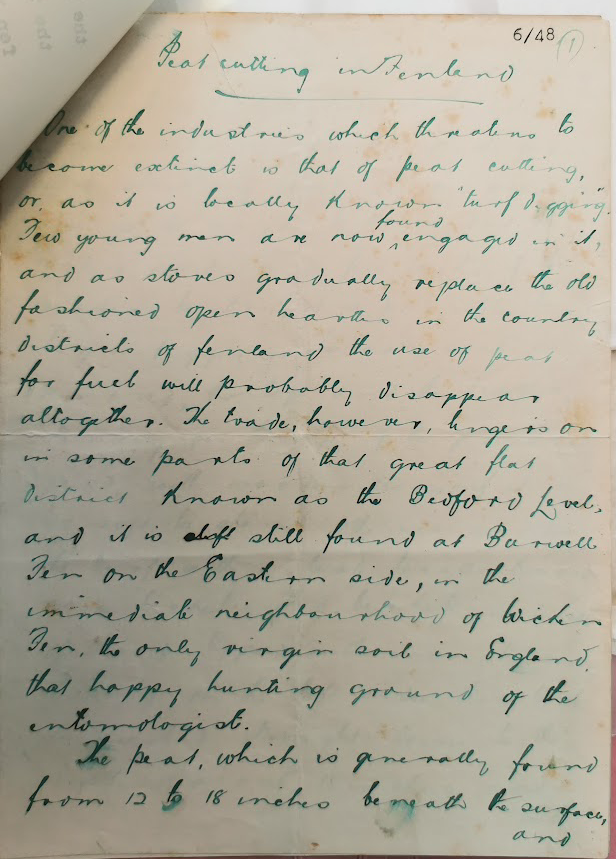 6/48 1
Peat cutting in Fenland
One of the industries which threatens to
become extinct is that of peat cutting,
or, as it is locally known "turf digging".
Few young men are now found engaged in it,
and as stoves gradually replace the old
fashioned open hearths in the country
districts of fenland the use of peat
for fuel will probably disappear
altogether. The trade, however, lingers on
in some parts of that great flat
district known as the Bedford Level,
and it is still found at Burwell
Fen on the Eastern side, in the
immediate neighbourhood of Wicken
Fen, the only virgin soil in England,
that happy hunting ground of the
entomologist.
The peat, which is generally found
from 12 to 18 inches beneath the surface,
and